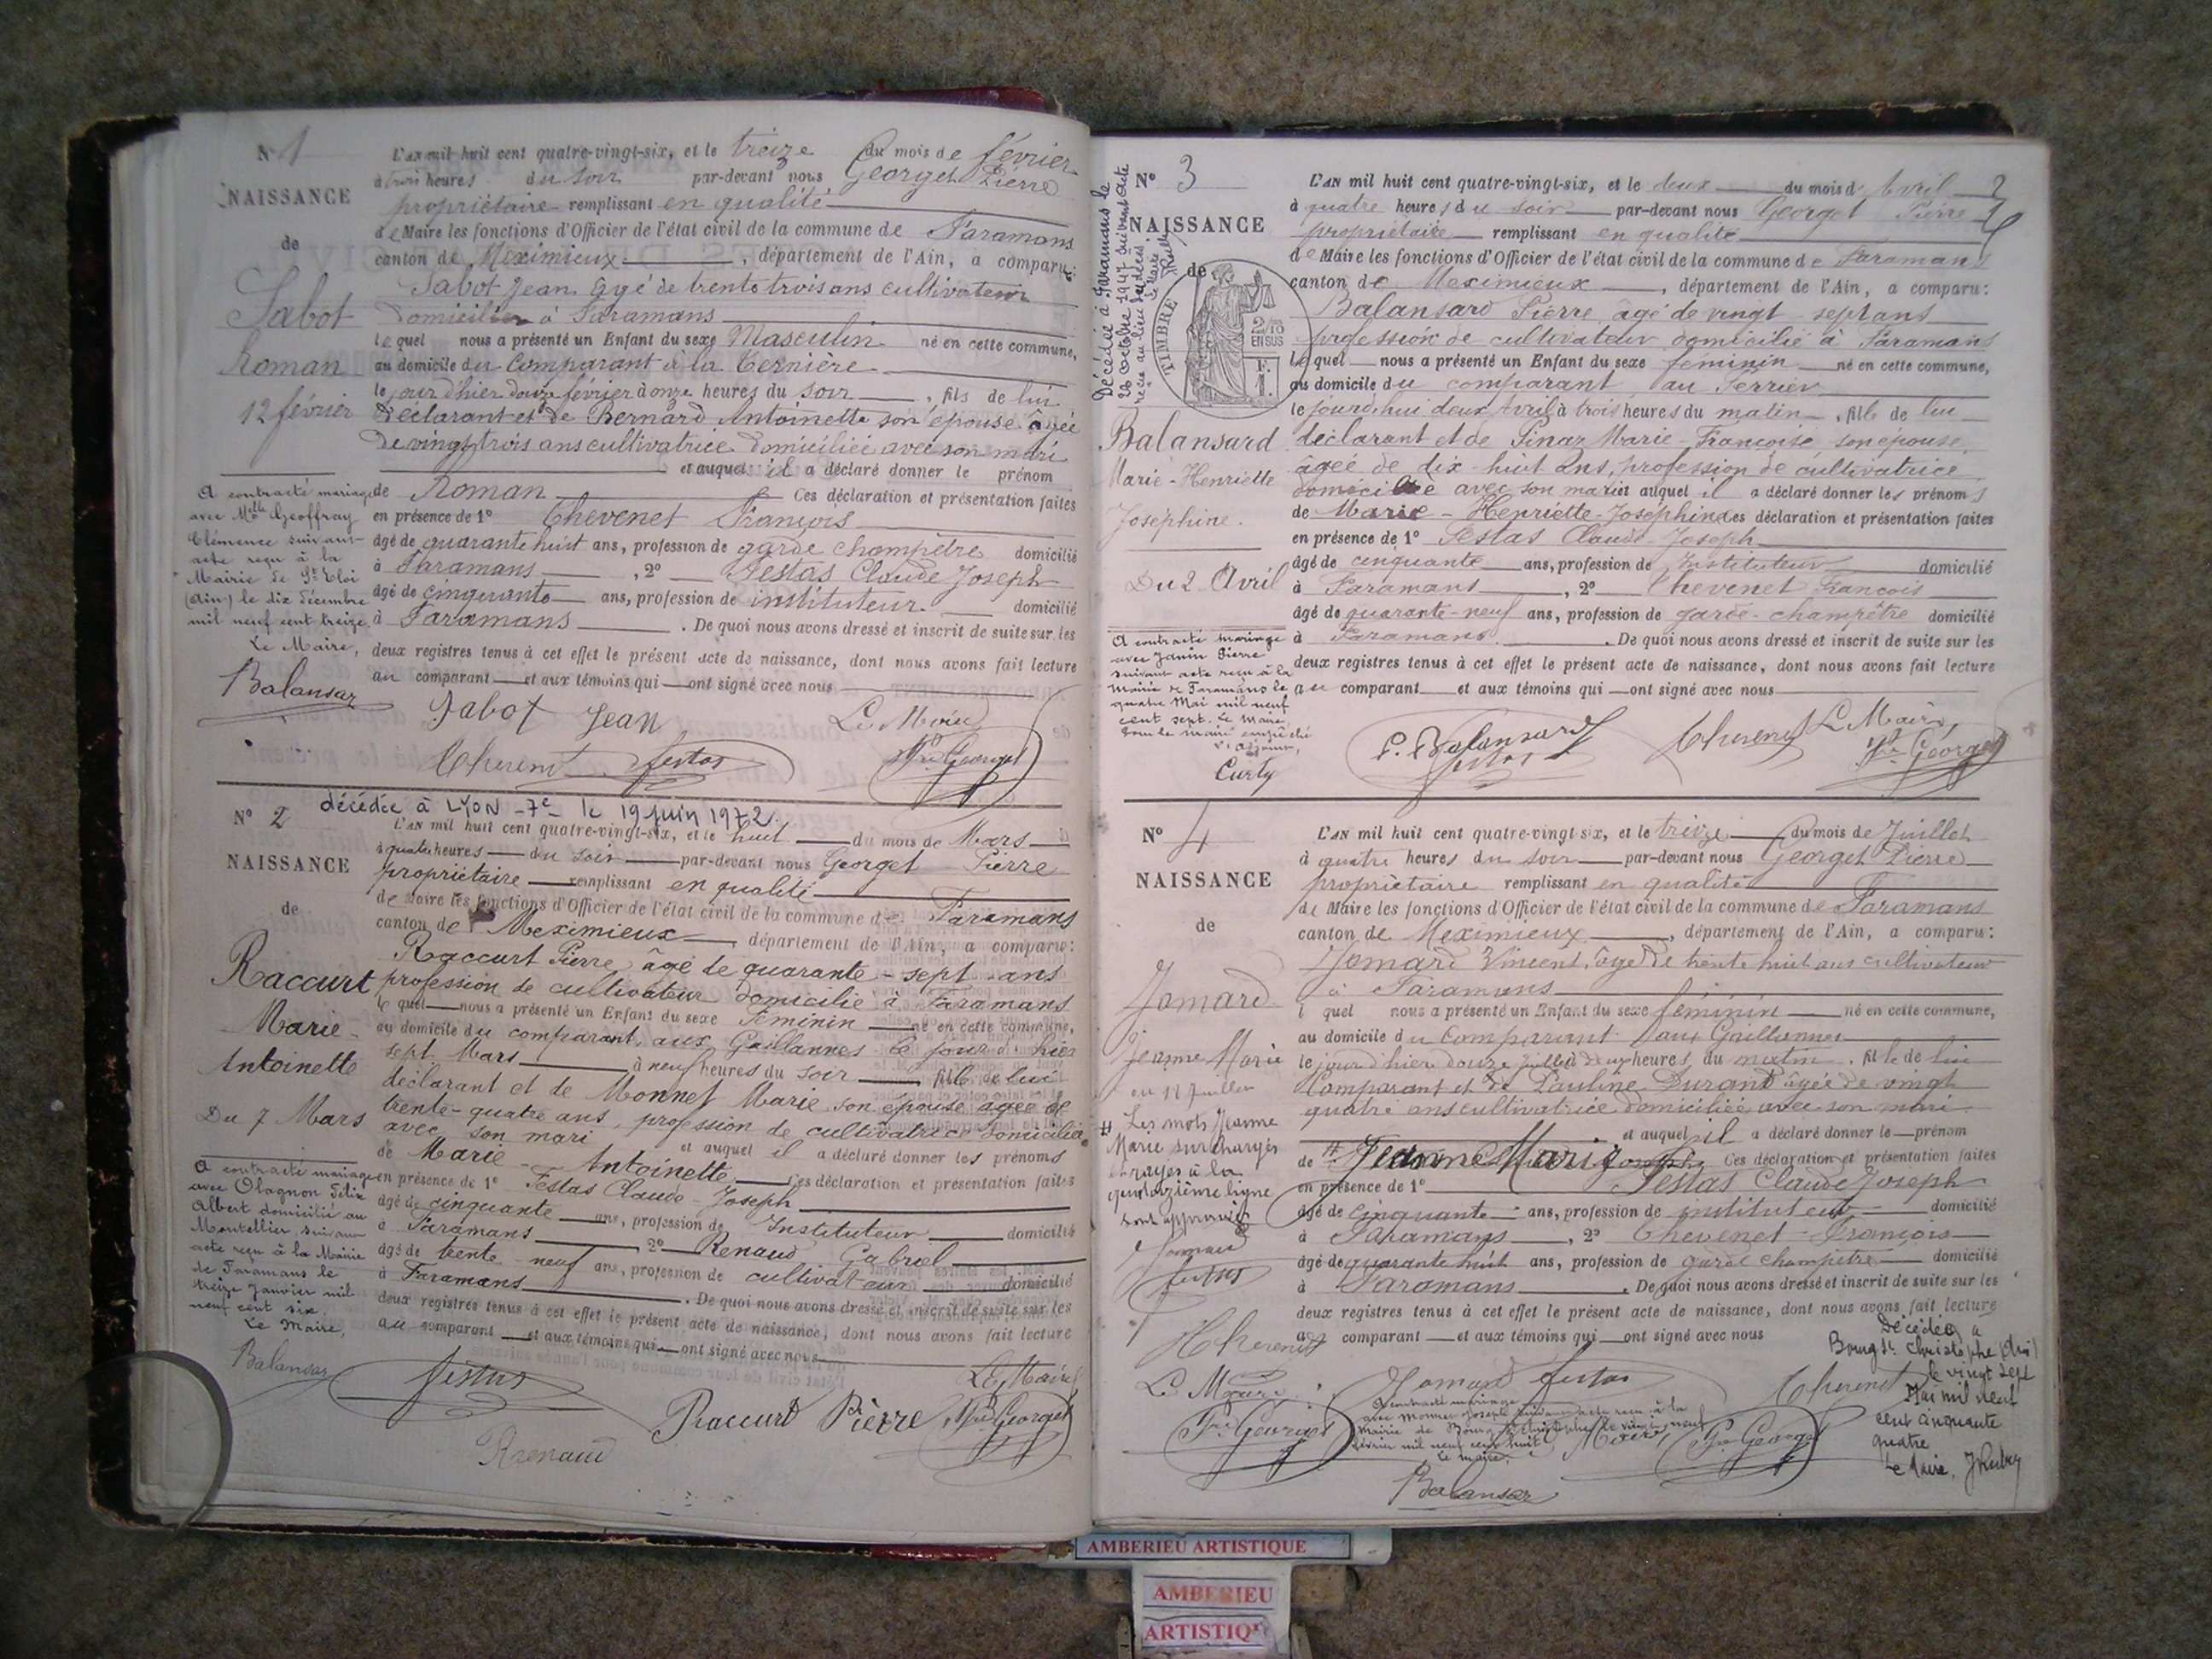 N° 1
NAISSANCE
de
Sabot
Roman
12 février
A contracté mariage
avec Mlle Geoffray
Clémence suivant
acte reçu à la
Mairie de St Eloi
(Ain) le dix décembre
mil neuf cent treize.
Le Maire,
Balansar
L'AN mil huit cent quatre-vingt-six, et le treize du mois de février
à trois heures du soir par-devant nous Georget Pierre
propriétaire remplissant en qualité
de Maire les fonctions d'Officier de l'état civil de la commune de Faramans
canton de Meximieux, département de l'Ain, a comparu:
Sabot Jean âgé de trente trois ans cultivateur
domicilié à Faramans
lequel nous a présenté un Enfant du sexe Masculin né en cette commune,
au domicile du Comparant à la Bernière
le jour d'hier douze février à onze heures du soir, fils de lui
déclarant et de Bernard Antoinette son épouse âgée
de vingt trois ans cultivatrice domiciliée avec son mari
et auquel il a déclaré donner le prénom
de Roman Ces déclaration et présentation faites
en présence de 1° Chevenet François
âgé de quarante huit ans, profession de garde champêtre domicilié
à Faramans, 2° Festas Claude Joseph
âgé de cinquante ans, profession de instituteur domicilié
à Faramans. De quoi nous avons dressé et inscrit de suite sur les
deux registres tenus à cet effet le présent acte de naissance, dont nous avons fait lecture
au comparant et aux témoins qui ont signé avec nous
Sabot Jean Le Maire
Chevenet Festas Pre Georget
N° 2
décédée à LYON -7e- le 19 juin 1972.
NAISSANCE
de
Raccurt
Marie-
Antoinette
Du 7 Mars
A contracté mariage
avec Olagnon Félix
Albert domicilié au
Montellier suivant
acte reçu à la Mairie
de Faramans le
treize Janvier mil
neuf cent six.
Le Maire,
Balansar
L'AN mil huit cent quatre-vingt-six, et le huit du mois de Mars
à quatre heures du soir par-devant nous Georget Pierre
propriétaire remplissant en qualité
de Maire les fonctions d'Officier de l'état civil de la commune de Faramans
canton de Meximieux, département de l'Ain, a comparu:
Raccurt Pierre, âgé de quarante-sept ans
profession de cultivateur domicilié à Faramans
le quel nous a présenté un Enfant du sexe Féminin né en cette commune,
au domicile du comparant, aux Gaillannes le jour d'hier
sept Mars à neuf heures du soir fille de lui
déclarant et de Monnet Marie son épouse agée de
trente-quatre ans, profession de cultivatrice domiciliée
avec son mari et auquel il a déclaré donner les prénoms
de Marie-Antoinette Ces déclaration et présentation faites
en présence de 1° Festas Claude-Joseph
âgé de cinquante ans, profession de Instituteur domicilié
à Faramans 2° Renaud Gabriel
âgé de trente-neuf ans, profession de cultivateur domicilié
à Faramans. De quoi nous avons dressé et inscrit de suite sur les
deux registres tenus à cet effet le présent acte de naissance, dont nous avons fait lecture
au comparant et aux témoins qui ont signé avec nous
Festas Le Maire
Raccurt Pierre Pre Georget
Renaud
Décédée à Faramans le
26 octobre 1947 suivant acte
reçu au lieu du décès
Le Maire
N° 3
NAISSANCE
de
TIMBRE
2/10
EN SUS
F.
1.
Balansard
Marie-Henriette
Joséphine.
Du 2 Avril
A contracté mariage
avec Janin Pierre
suivant acte reçu à la
Mairie de Faramans le
quatre Mai mil neuf
cent sept. Le Maire
Pour le maire empêché
l'adjoint,
Curty
2
L'AN mil huit cent quatre-vingt-six, et le deux du mois d'Avril
à quatre heures du soir par-devant nous Georget Pierre
propriétaire remplissant en qualité
de Maire les fonctions d'Officier de l'état civil de la commune de Faramans
canton de Meximieux, département de l'Ain, a comparu:
Balansard Pierre, âgé de vingt-sept ans
profession de cultivateur domicilié à Faramans
le quel nous a présenté un Enfant du sexe féminin né en cette commune,
au domicile du comparant au Perrier
le jourd'hui deux Avril à trois heures du matin, fille de lui
déclarant et de Pinaz Marie-Françoise son épouse,
âgée de dix-huit ans, profession de cultivatrice
domiciliée avec son mari et auquel il a déclaré donner les prénoms
de Marie-Henriette-Joséphine Ces déclaration et présentation faites
en présence de 1° Festas Claude-Joseph
âgé de cinquante ans, profession de Instituteur domicilié
à Faramans, 2° Chevenet François
âgé de quarante-neuf ans, profession de garde-champêtre domicilié
à Faramans. De quoi nous avons dressé et inscrit de suite sur les
deux registres tenus à cet effet le présent acte de naissance, dont nous avons fait lecture
au comparant et aux témoins qui ont signé avec nous
P. Balansard Chevenet Le Maire,
Festas Pre Georget
N° 4
NAISSANCE
de
Jomard
Jeanne Marie
du 12 Juillet
Les mots Jeanne
Marie surchargés
et rayés à la
quatorzième ligne
sont approuvés
Jomard
Festas
Chevenet
Le Maire
Pre Georget
L'AN mil huit cent quatre-vingt-six, et le treize du mois de Juillet
à quatre heures du soir par-devant nous Georget Pierre
propriétaire remplissant en qualité
de Maire les fonctions d'Officier de l'état civil de la commune de Faramans
canton de Meximieux, département de l'Ain, a comparu:
Jomard Vincent, âgé de trente huit ans cultivateur
à Faramans
lequel nous a présenté un Enfant du sexe féminin né en cette commune,
au domicile du Comparant aux Gaillannes
le jour d'hier douze juillet à deux heures du matin, fille de lui
Comparant et de Pauline Durand âgée de vingt
quatre ans cultivatrice domiciliée avec son mari
et auquel il a déclaré donner le prénom
de Jeanne Marie Ces déclaration et présentation faites
en présence de 1° Festas Claude Joseph
âgé de cinquante ans, profession de instituteur domicilié
à Faramans, 2° Chevenet François
âgé de quarante huit ans, profession de garde champêtre domicilié
à Faramans. De quoi nous avons dressé et inscrit de suite sur les
deux registres tenus à cet effet le présent acte de naissance, dont nous avons fait lecture
au comparant et aux témoins qui ont signé avec nous
Jomard Festas Chevenet
A contracté mariage
avec Monnet Joseph suivant acte reçu à la
Mairie de Bourg St Christophe le vingt neuf
février mil neuf cent huit
Le maire,
Balansar
Le Maire, Pre Georget
Décédée à
Bourg St Christophe (Ain)
le vingt sept
Mai mil neuf
cent cinquante
quatre
Le Maire,
AMBERIEU ARTISTIQUE
AMBERIEU
ARTISTIQ